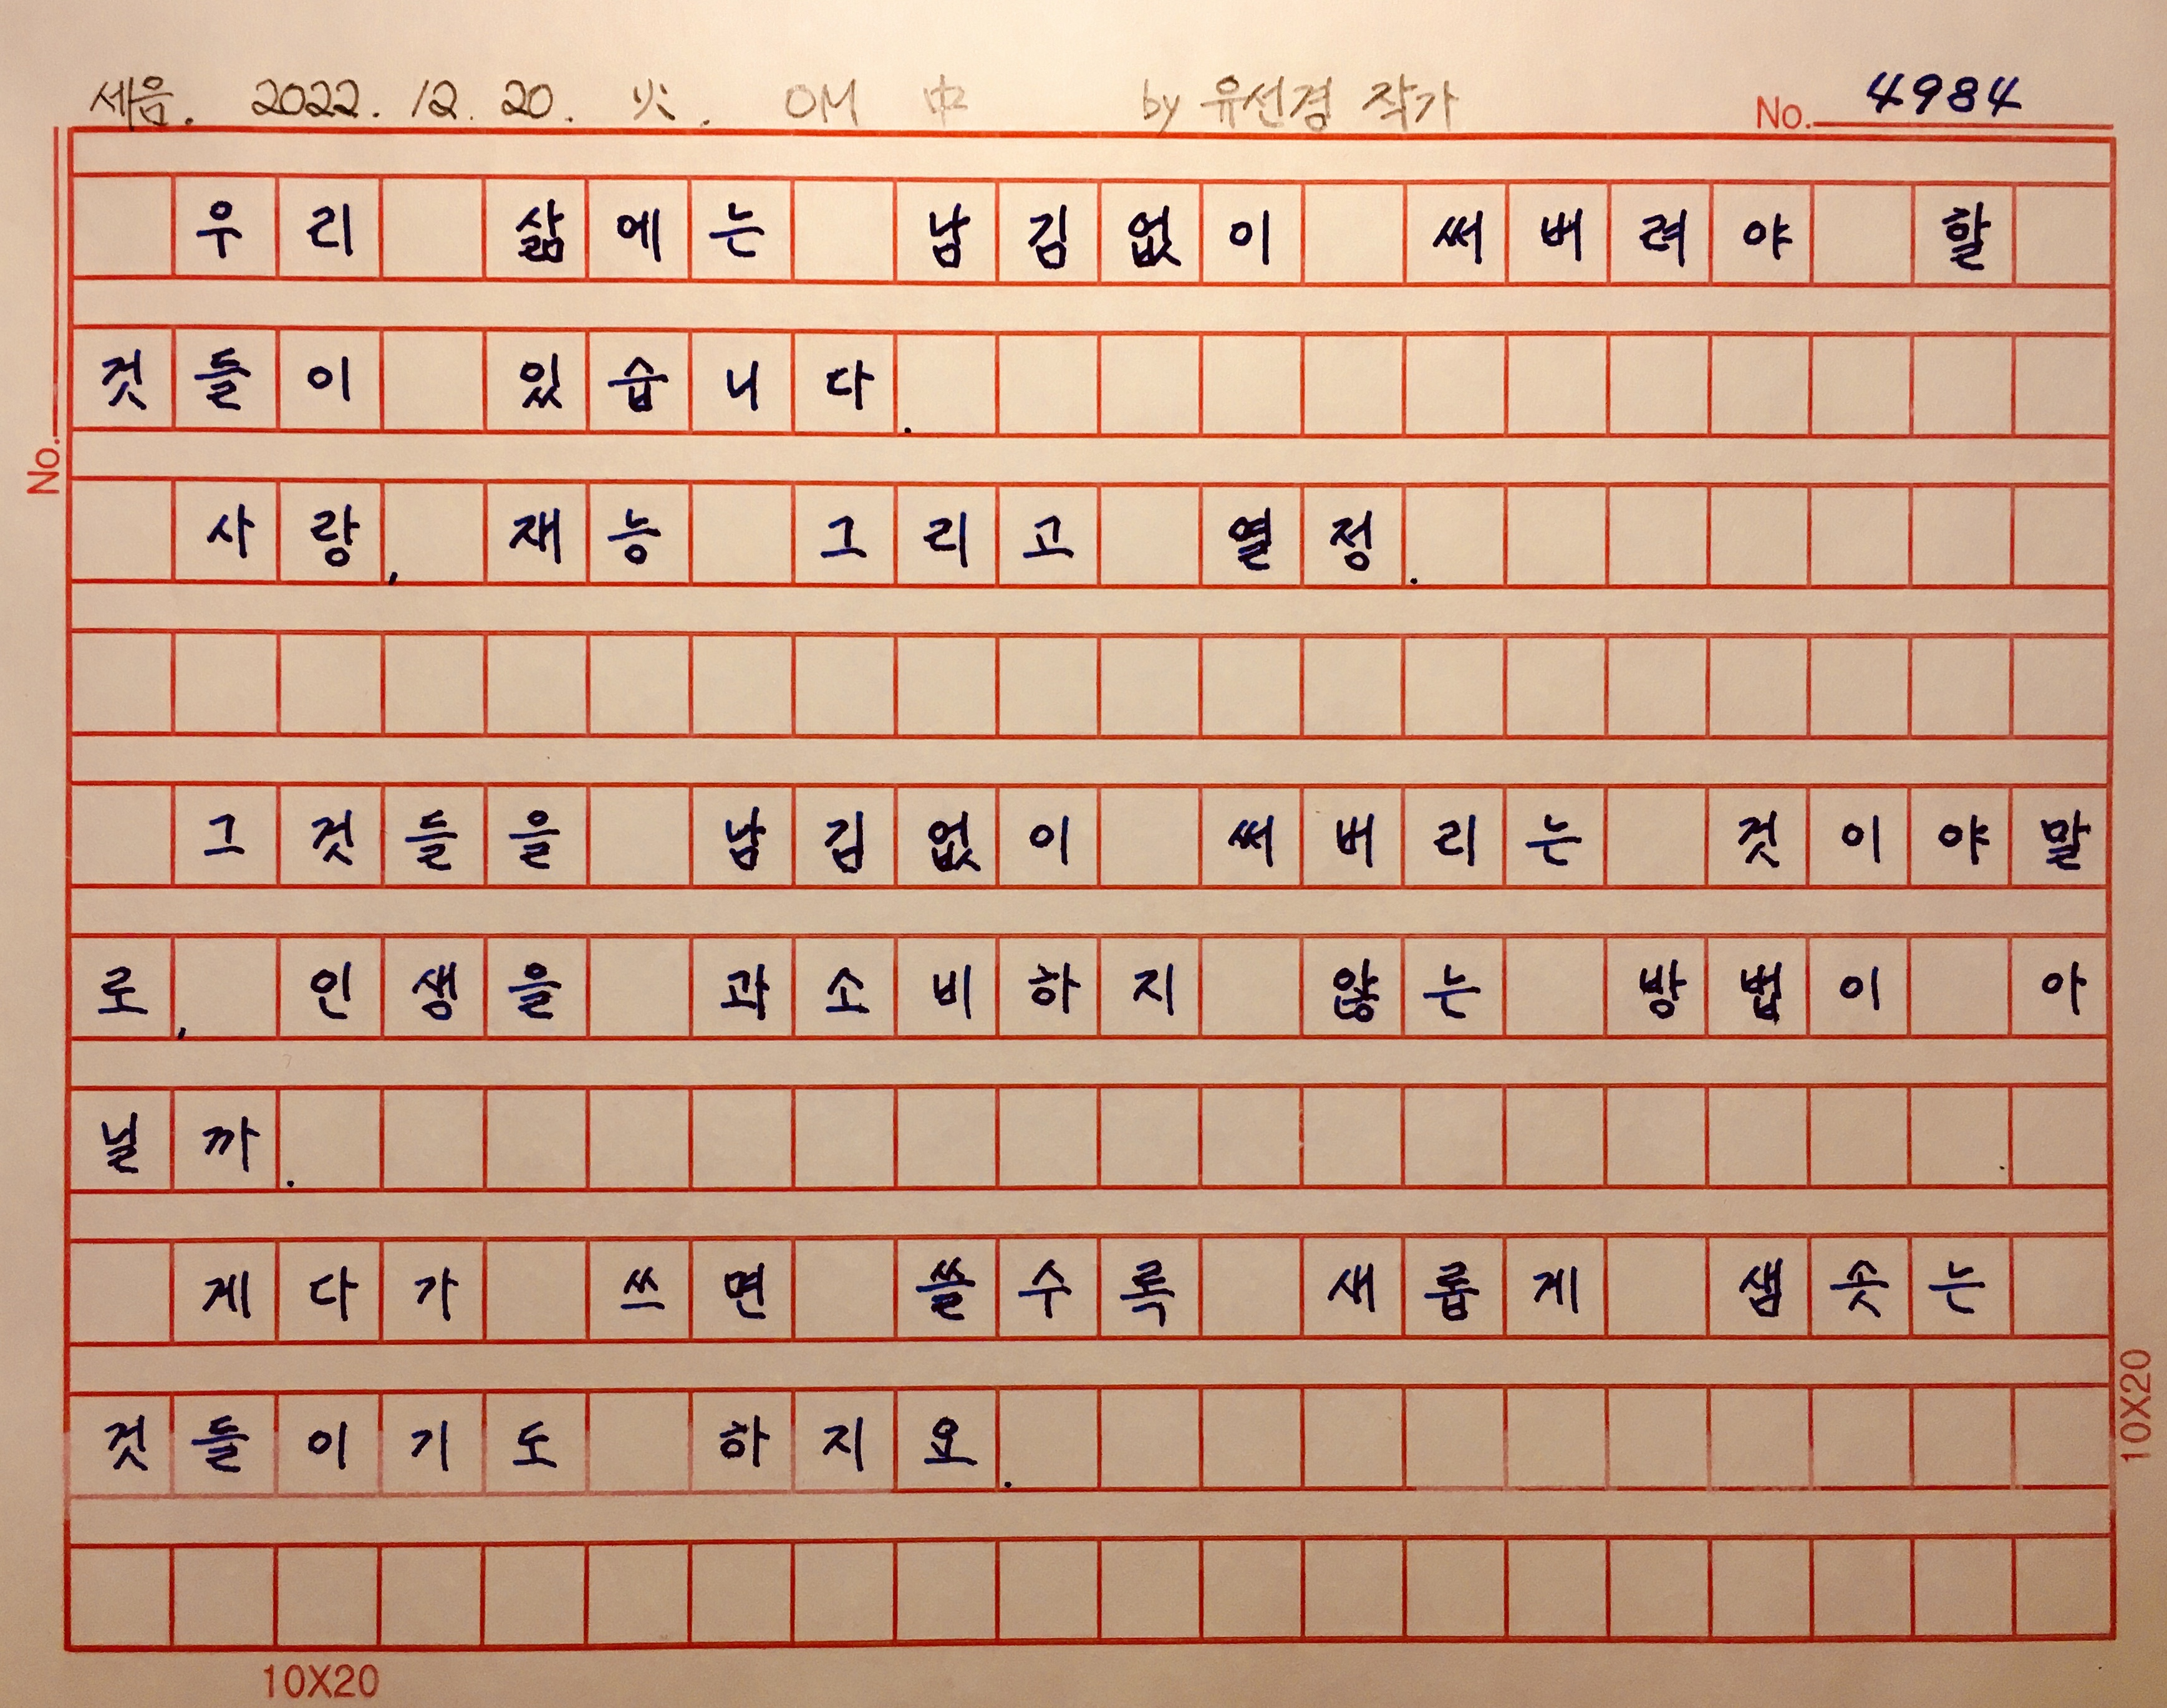 세음. 2022. 12. 20. 火. OM 中 by 유선경 작가
No. 4984
No.
우리 삶에는 남김없이 써버려야 할
것들이 있습니다.
사랑, 재능 그리고 열정.
그것들을 남김없이 써버리는 것이야말
로, 인생을 과소비하지 않는 방법이 아
닐까.
게다가 쓰면 쓸수록 새롭게 샘솟는
것들이기도 하지요.
10X20
10X20